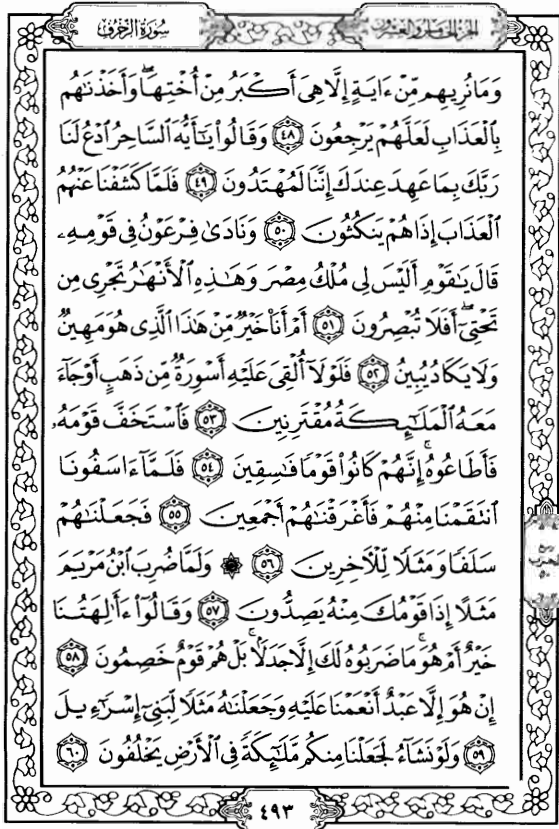 سُورَةُ الزُّخْرُفِ
الجزء الخامس والعشرون
وَمَا نُرِيهِم مِّنْ ءَايَةٍ إِلَّا هِيَ أَكْبَرُ مِنْ أُخْتِهَا ۖ وَأَخَذْنَٰهُم
بِٱلْعَذَابِ لَعَلَّهُمْ يَرْجِعُونَ ٤٨ وَقَالُوا۟ يَٰٓأَيُّهَ ٱلسَّاحِرُ ٱدْعُ لَنَا
رَبَّكَ بِمَا عَهِدَ عِندَكَ إِنَّنَا لَمُهْتَدُونَ ٤٩ فَلَمَّا كَشَفْنَا عَنْهُمُ
ٱلْعَذَابَ إِذَا هُمْ يَنكُثُونَ ٥٠ وَنَادَىٰ فِرْعَوْنُ فِى قَوْمِهِۦ
قَالَ يَٰقَوْمِ أَلَيْسَ لِى مُلْكُ مِصْرَ وَهَٰذِهِ ٱلْأَنْهَٰرُ تَجْرِى مِن
تَحْتِىٓ ۖ أَفَلَا تُبْصِرُونَ ٥١ أَمْ أَنَا۠ خَيْرٌ مِّنْ هَٰذَا ٱلَّذِى هُوَ مَهِينٌ
وَلَا يَكَادُ يُبِينُ ٥٢ فَلَوْلَآ أُلْقِىَ عَلَيْهِ أَسْوِرَةٌ مِّن ذَهَبٍ أَوْ جَآءَ
مَعَهُ ٱلْمَلَٰٓئِكَةُ مُقْتَرِنِينَ ٥٣ فَٱسْتَخَفَّ قَوْمَهُۥ
فَأَطَاعُوهُ ۚ إِنَّهُمْ كَانُوا۟ قَوْمًا فَٰسِقِينَ ٥٤ فَلَمَّآ ءَاسَفُونَا
ٱنتَقَمْنَا مِنْهُمْ فَأَغْرَقْنَٰهُمْ أَجْمَعِينَ ٥٥ فَجَعَلْنَٰهُمْ
سَلَفًا وَمَثَلًا لِّلْءَاخِرِينَ ٥٦ ۞ وَلَمَّا ضُرِبَ ٱبْنُ مَرْيَمَ
مَثَلًا إِذَا قَوْمُكَ مِنْهُ يَصِدُّونَ ٥٧ وَقَالُوٓا۟ ءَأَٰلِهَتُنَا
خَيْرٌ أَمْ هُوَ ۚ مَا ضَرَبُوهُ لَكَ إِلَّا جَدَلًۢا ۚ بَلْ هُمْ قَوْمٌ خَصِمُونَ ٥٨
إِنْ هُوَ إِلَّا عَبْدٌ أَنْعَمْنَا عَلَيْهِ وَجَعَلْنَٰهُ مَثَلًا لِّبَنِىٓ إِسْرَٰٓءِيلَ
٥٩ وَلَوْ نَشَآءُ لَجَعَلْنَا مِنكُم مَّلَٰٓئِكَةً فِى ٱلْأَرْضِ يَخْلُفُونَ ٦٠
٤٩٣